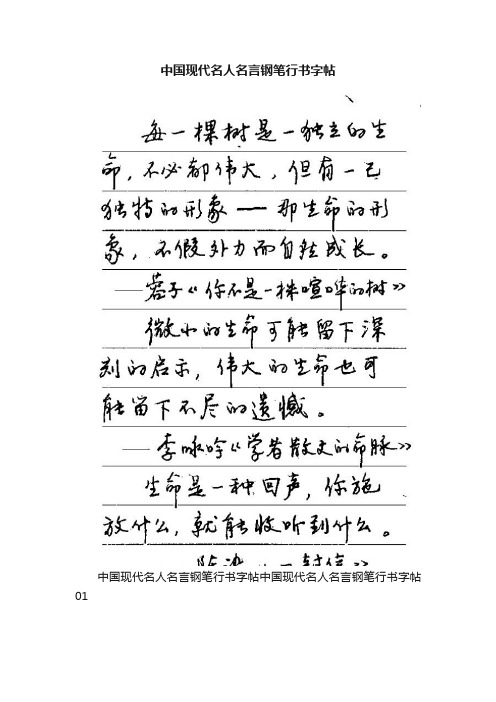 中国现代名人名言钢笔行书字帖
每一棵树是一独立的生
命，不必都伟大，但有一己
独特的形象——那生命的形
象，不假外力而自然成长。
——蓉子《你不是一株喧哗的树》
微小的生命可能留下深
刻的启示，伟大的生命也可
能留下不尽的遗憾。
——李咏吟《学者散文的命脉》
生命是一种回声，你施
放什么，就能收听到什么。
《一封信》
中国现代名人名言钢笔行书字帖中国现代名人名言钢笔行书字帖
01